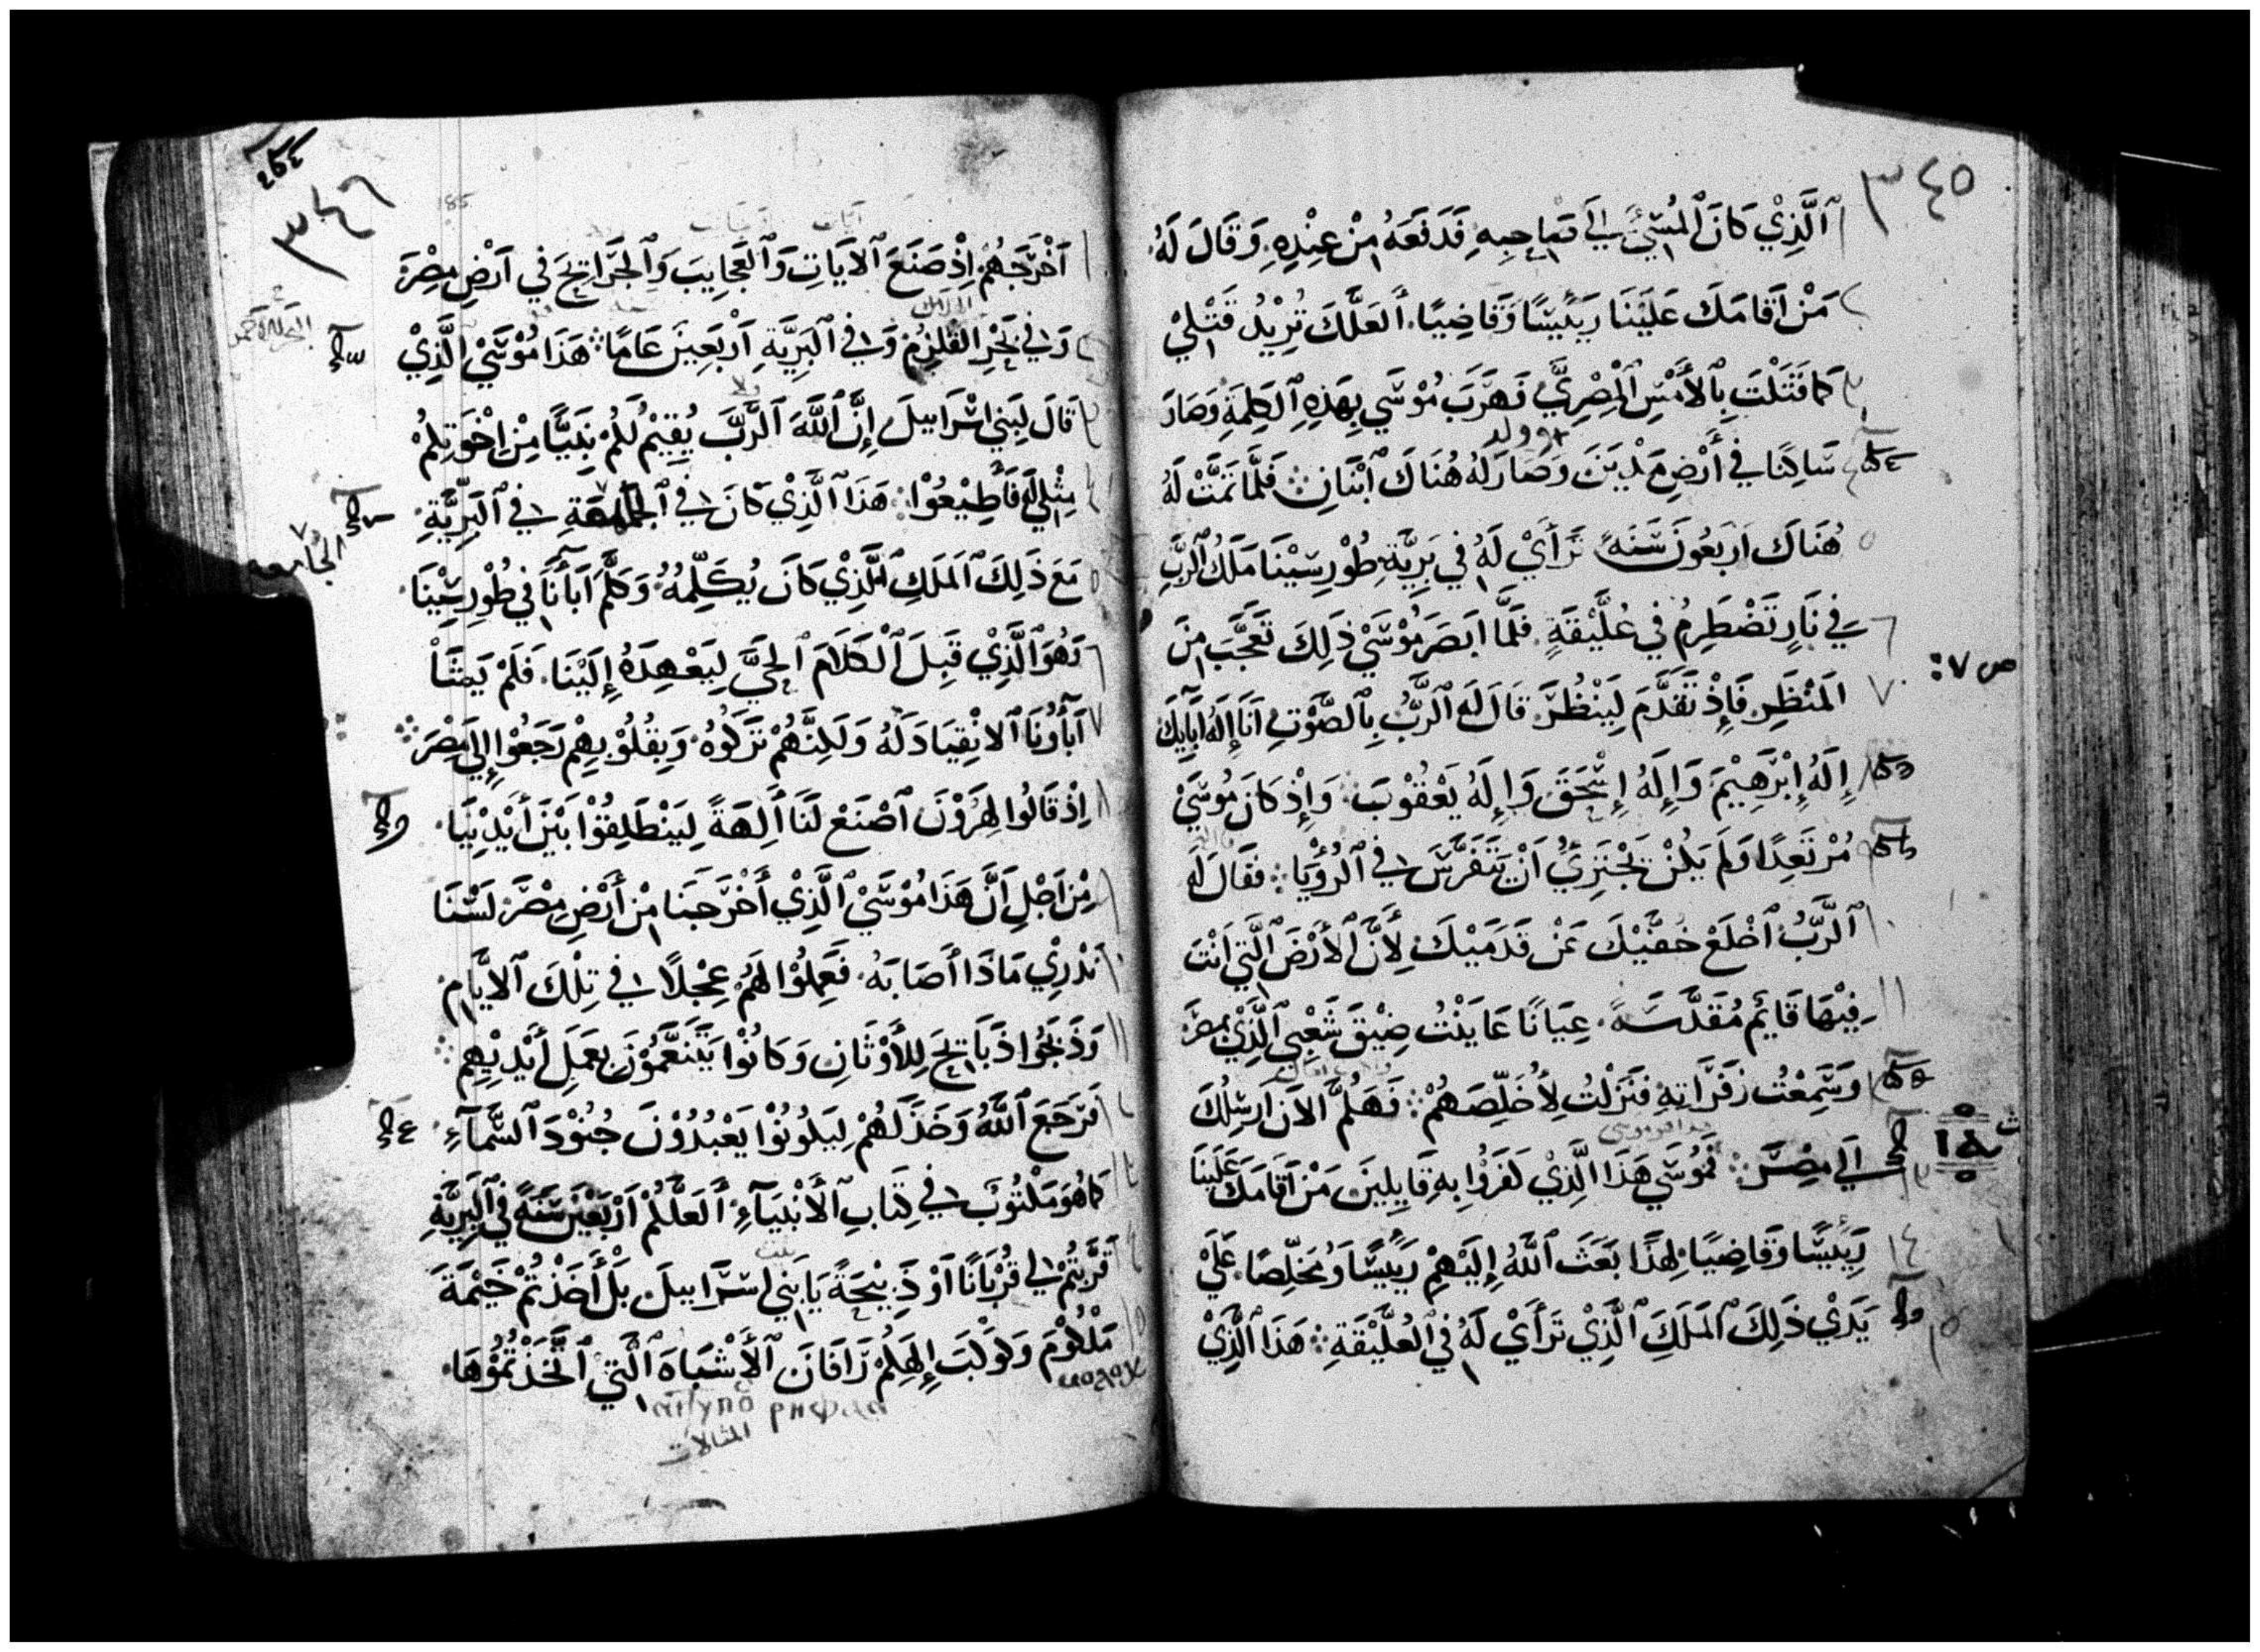 ٣٤٥
ٱلَّذِيْ كَانَ ٱلمُسِّيْ إِلَى صَاحِبِهِ فَدَفَعَهُ مِنْ عِنْدِهِ وَقَالَ لَهُ
مَنْ اَقَامَكَ عَلَيْنَا رَئِيسًا وَقَاضِيًا أَلَعَلَّكَ تُرِيْدُ قَتْلِيْ
كَمَا قَتَلْتَ بِٱلأَمْسِ ٱلْمِصْرِيَّ فَهَرَبَ مُوْسَي بِهَذِهِ ٱلكَلِمَةِ وَصَارَ
سَاكِنًا في أَرْضِ مَدْيَنَ وَصَارَ لَهُ هُنَاكَ ٱبْنَانِ فَلَمَّا تَمَّتْ لَهُ
هُنَاكَ اَرْبَعُونَ سَنَةً تَرَأَيْ لَهُ في بَرِيَّةِ طُوْرِ سِيْنَا مَلَكُ ٱلرَّبِّ
في نَارٍ تَضْطَرِمُ في عُلَّيْقَةٍ فَلَمَّا ابَصَرَ مُوْسَيْ ذَلِكَ تَعَجَّبَ مِنَ
المَنْظَرِ فَإِذْ تَقَدَّمَ لِيَنْظُرَ قَالَ لَهُ ٱلرَّبُّ بِٱلصَّوْتِ اَنَا إِلَهُ اَبَآيِكَ
إِلَهُ إِبْرَهِيْمَ وَإِلَهُ إِسْحَقَ وَإِلَهُ يَعْقُوْبَ وَإِذْ كَانَ مُوْسَيْ
مُرْتَعِدًا وَلَمْ يَكُنْ يَجْتَرِيُ اَنْ يَتَفَرَّسَ في ٱلرُّؤْيَا فَقَالَ لَهُ
ٱلرَّبُّ ٱخْلَعْ خُفَّيْكَ عَنْ قَدَمَيْكَ لِأَنَّ ٱلأَرْضَ ٱلَّتي اَنْتَ
فِيْهَا قَايِم مُقَدَّسَةً عِيَانًا عَايَنْتُ ضِيْقَ شَعْبي ٱلَّذِيْ بمِصْرَ
وَسَمِعْتُ زَفَرَاتِهِ فَنَزَلْتُ لِأُخَلِّصَهُمْ فَهَلُمَّ الآنَ اُرْسِلُكَ
إِلَى مِصْرَ فَمُوْسَي هَذَا الَّذِيْ كَفَرُوْا بِهِ قَايِلِينَ مَنْ اَقَامَكَ عَلَيْنَا
رَئِيْسًا وَقَاضِيًا لِهذَا بَعَثَ ٱللَّهُ إِلَيْهِمْ رَئِيْسًا وَمُخَلِّصًا عَلَيْ
يَدَيْ ذَلِكَ ٱلمَلَكِ ٱلَّذِيْ تَرَأَيْ لَهُ في ٱلعُلَّيْقَةِ هَذَا ٱلَّذِيْ
٣٤٦
اَخْرَجَهُمْ اِذْ صَنَعَ ٱلآيَاتِ وَٱلعَجَايِبَ وَٱلجَرَايِحَ في اَرْضِ مِصْرَ
وَفي بَحْرِ القُلْزِمْ وَفي ٱلبَرِيَّةِ اَرْبَعِيْنَ عَامًا هَذَا مُوْسَيْ ٱلَّذِيْ
قَالَ لِبَني اِسْرَاييلَ إِنَّ ٱللَّهَ ٱلرَّبَّ يُقِيْمُ لَكُمْ نَبِيًّا مِنْ اِخْوَتِكُمْ
مِثْلي لَهُ فَأَطِيْعُوْا هَذَا ٱلَّذِيْ كَانَ في في ٱلبَرِّيَّةِ
الجامعه
مَعَ ذَلِكَ ٱلمَلَكِ ٱلَّذِيْ كَانَ يُكَلِّمُهُ وَكَلَّمَ اَبَآنَا في طُوْرِ سِيْنَا
وَهُوَ ٱلَّذِيْ قَبِلَ ٱلْكَلَامَ ٱلحَيَّ لِيَعْهِدَهُ إِلَيْنَا فَلَمْ يَشَأْ
اَبَآؤُنَا ٱلانْقِيَادَ لَهُ وَلَكِنَّهُمْ تَرَكُوْهُ وَبِقُلُوْبِهِمْ رَجَعُوْا إِلَى مِصْرَ
اِذْ قَالُوا لِهَرُوْنَ ٱصْنَعْ لَنَا أَلِهَةً لِيَنْطَلِقُوْا بَيْنَ أَيْدِيْنَا
مِنْ اَجْلِ اَنَّ هَذَا مُوْسَيْ ٱلَّذِيْ أَخْرَجَنَا مِنْ أَرْضِ مِصْرَ لَسْنَا
نَدْرِيْ مَاذَا أَصَابَهُ فَعَمِلُوْا لَهُمْ عِجْلًا في تِلْكَ ٱلايَّامِ
وَذَبَحُوْا ذَبَايِحَ لِلأَوْثَانِ وَكَانُوْا يَتَنَعَّمُوْنَ بِعَمَلِ أَيْدِيْهِمْ
فَرَجَعَ ٱللَّهُ وَخَذَلَهُمْ لِيَكُوْنُوْا يَعْبُدُوْنَ جُنُوْدَ ٱلسَّمَآءِ
كَمَا هُوَ مَكْتُوْبَ في كِتَابِ ٱلأَنْبِيَآءِ أَلَعَلَّكُمْ اَرْبَعِيْنَ سَنَةً في ٱلبَرِيَّةِ
قَرَّبْتُمْ لي قُرْبَانًا اَوْ ذَبِيْحَةً يَا بَني اِسْرَاييلَ بَلْ أَخَذْتُمْ خَيْمَةَ
مَلْكُوْمَ وَكَوْكَبَ إِلَهِكُمْ رَافَانَ ٱلأَشْبَاهَ ٱلَّتي ٱتَّخَذْتُمُوْهَا
المثالات